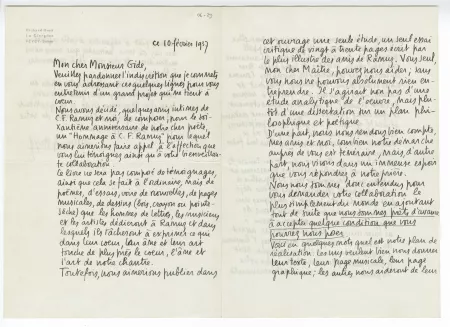 ce 10 février 1937
Mon cher Monsieur Gide,
Veuillez pardonner l'indiscrétion que je commets
en vous adressant ces quelques lignes pour vous
entretenir d'un grand projet qui me tient à
cœur.
Nous avons décidé, quelques amis intimes de
C.F. Ramuz et moi, de composer, pour le soi-
xantième anniversaire de notre cher poète,
un "Hommage à C.F. Ramuz" pour lequel
nous aimerions faire appel à l'affection que
vous lui témoignez ainsi qu'à votre bienveillan-
te collaboration.
Le livre ne sera pas composé de témoignages,
ainsi que cela se fait à l'ordinaire, mais de
poèmes, d'essais, voire de nouvelles, de pages
musicales, de dessins (bois, crayon ou pointe-
sèche) que les hommes de lettres, les musiciens
et les artistes dédieront à Ramuz et dans
lesquels ils tâcheront d'exprimer ce qui
dans leur cœur, leur âme et leur art
touche de plus près le cœur, l'âme et
l'art de notre chantre.
Toutefois, nous aimerions publier dans
cet ouvrage une seule étude, un seul essai
critique de vingt à trente pages écrit par
le plus illustre des amis de Ramuz. Vous seul,
mon cher Maître, pouvez nous aider, sans
vous nous ne pouvons absolument rien en-
treprendre. Il s'agirait non pas d'une
étude analytique de l'œuvre, mais plu-
tôt d'une dissertation sur un plan phi-
losophique et poétique.
D'une part, nous nous rendons bien compte,
mes amis et moi, combien notre démarche
auprès de vous est téméraire, mais d'autre
part, nous vivons dans un immense espoir
que vous répondrez à notre prière.
Nous nous sommes donc entendus pour
vous demander votre collaboration le
plus simplement du monde en ajoutant
tout de suite que nous sommes prêts d'avance
à accepter quelque condition que vous
pouvez nous poser.
Voici en quelques mots quel est notre plan de
réalisation: les uns veulent bien nous donner
leur texte, leur page musicale, leur page
graphique; les autres nous aideront de leur